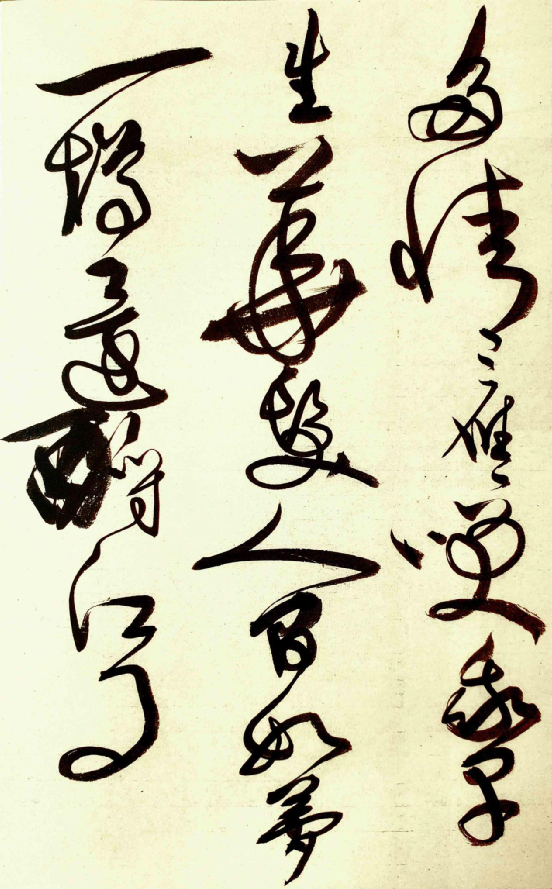 多情應笑我早
生華髮人間如夢
一樽還酹江月